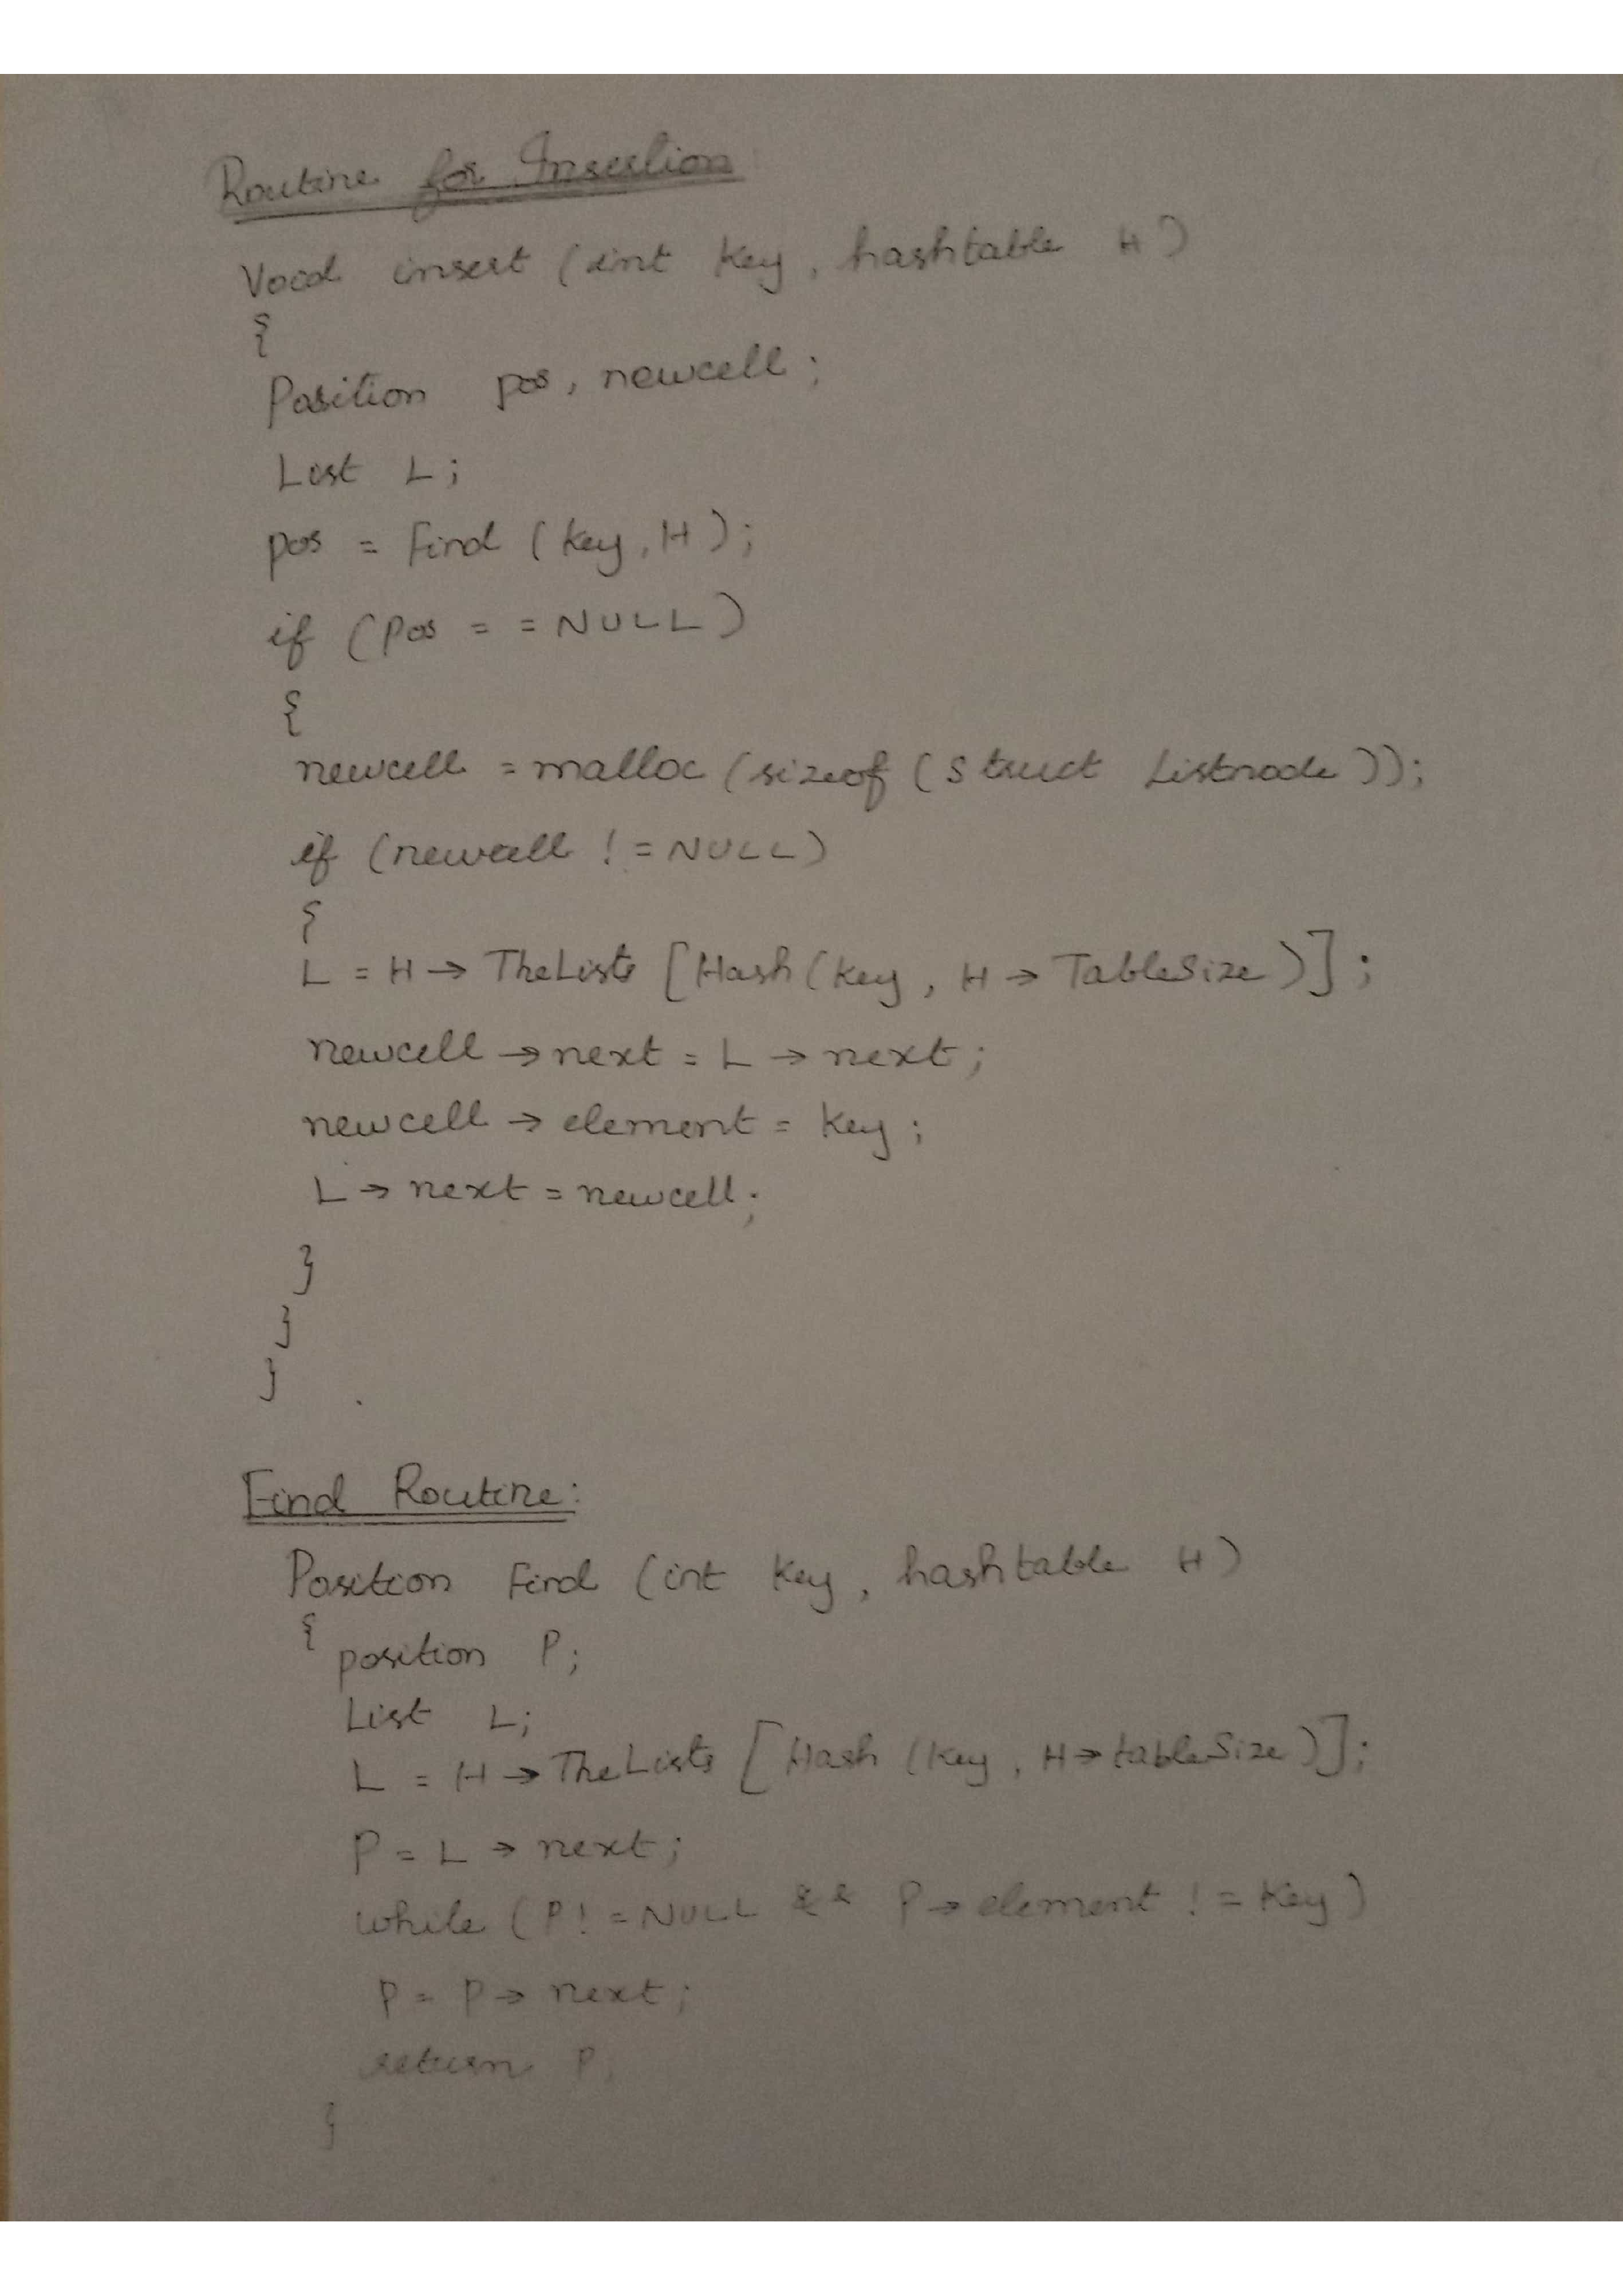 Routine for Insertion
Void insert (int key, hashtable H)
{
Position pos, newcell;
List L;
pos = Find (key, H);
if (pos = = NULL)
{
newcell = malloc (sizeof (Struct Listnode));
if (newcell ! = NULL)
{
L = H → TheLists [Hash (key, H → TableSize)];
newcell → next = L → next;
newcell → element = key;
L → next = newcell;
}
}
}
Find Routine:
Position Find (int key, hashtable H)
{
position P;
List L;
L = H → TheLists [Hash (key, H → tableSize)];
P = L → next;
while (P! = NULL && P → element ! = key)
P = P → next;
return P;
}